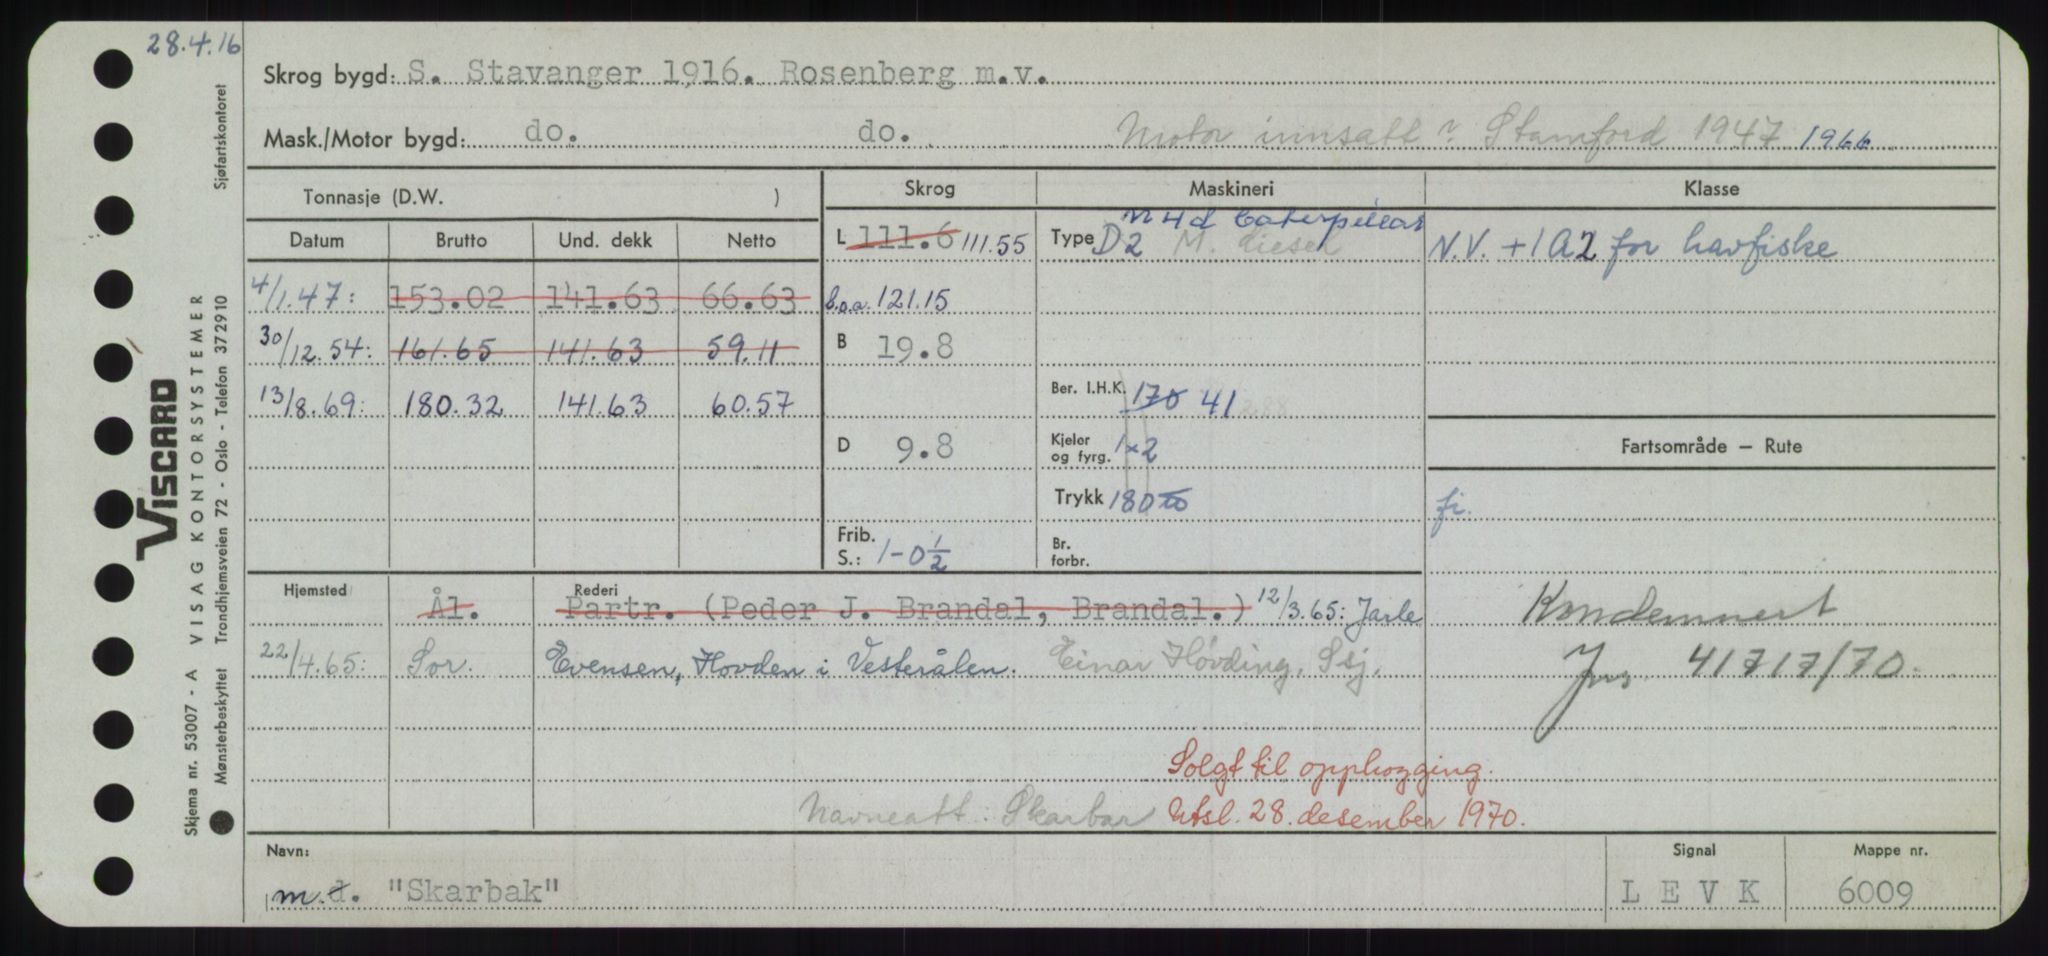 28.4.16
Skrog bygd: S. Stavanger 1916. Rosenberg m.v.
Mask./Motor bygd: do. do. Motor innsatt Stamford 1947 1966
Tonnasje (D.W. ) Skrog Maskineri Klasse
Datum Brutto Und. dekk Netto
L 111.6 111.55 Type D2 M. diesel N.V. +1A2 for havfiske
4/1.47: 153.02 141.63 66.63 l.o.a. 121.15
30/12.54: 161.65 141.63 59.11 B 19.8
13/8.69: 180.32 141.63 60.57 Ber. I.H.K. 170 41
D 9.8 Kjeler og fyrg. 1x2 Fartsområde – Rute
Trykk 180 fi.
Frib. S.: 1-0½ Br. forbr.
Hjemsted Rederi
Ål. Partr. (Peder J. Brandal, Brandal.) 12/3.65: Jarle
Kondemnert
22/4.65: Sor. Evensen, Hovden i Vesterålen. Einar Høvding, Ssj.
41717/70.
Solgt til opphogging.
Navneatt. Skarbar Utsl. 28. desember 1970.
Navn: Signal Mappe nr.
m.d. "Skarbak" LEVK 6009
Skjema nr. 53007 - A VISAG KONTORSYSTEMER
VISCARD
Mønsterbeskyttet Trondhjemsveien 72 - Oslo - Telefon 372910 Sjøfartskontoret